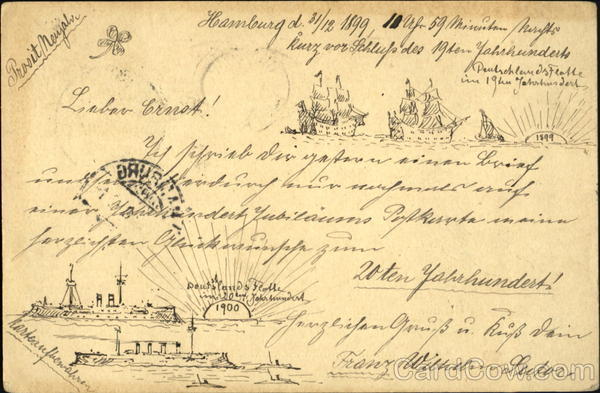 Prosit Neujahr
Hamburg d. 31/12 1899 10 Uhr 59 Minuten Nachts
kurz vor Schluß des 19ten Jahrhunderts
Deutschlands Flotte
im 19ten Jahrhundert
1899
Lieber Ernst!
Ich schrieb Dir gestern einen Brief
und hierdurch nur nochmals auf
einer Jahrhundert Jubiläums Postkarte meine
herzlichsten Glückwünsche zum
20ten Jahrhundert!
HAMBURG
Deutschlands Flotte
im 20ten Jahrhundert
1900
Herzlichen Gruß u. Kuß Dein
Franz
Karte aufbewahren
CardCow.com